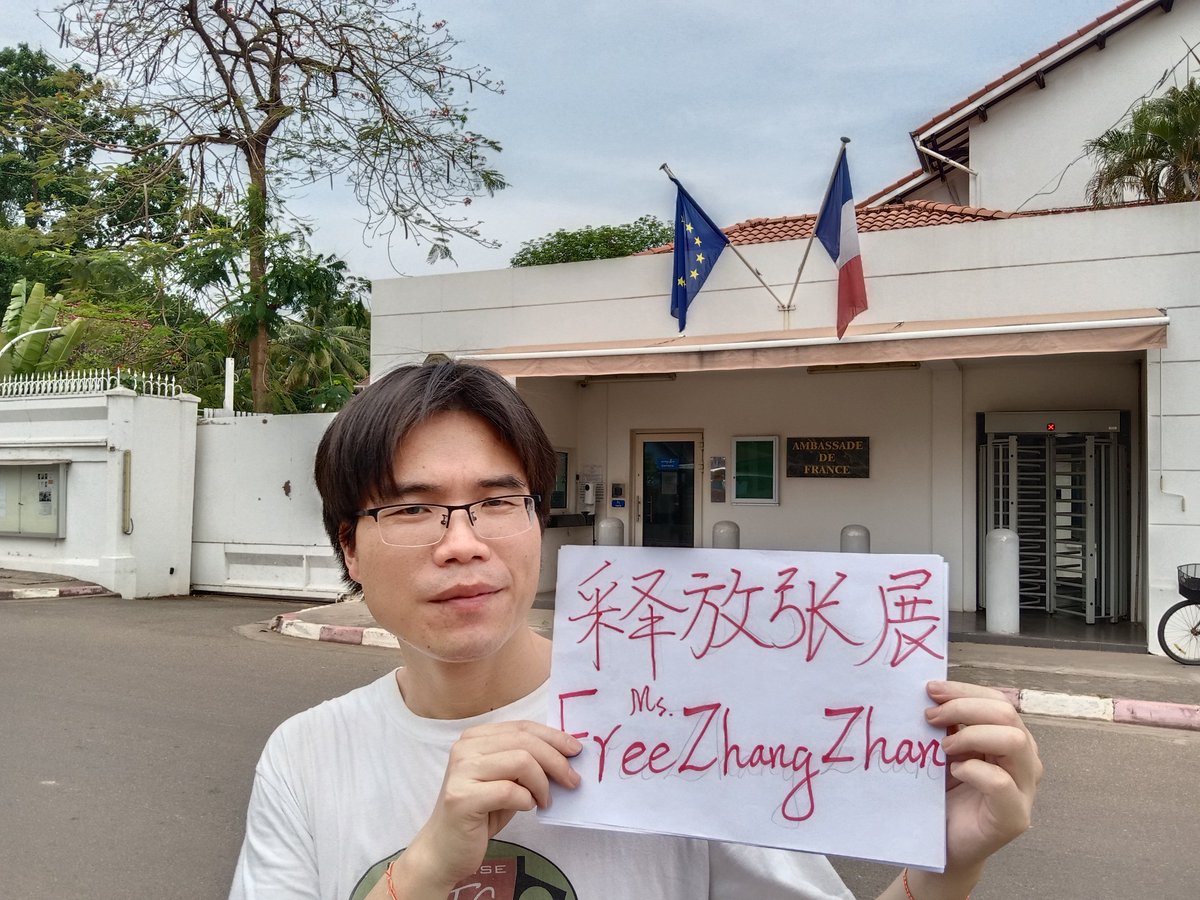 AMBASSADE
DE
FRANCE
释放张展
Ms.
Free Zhang Zhan